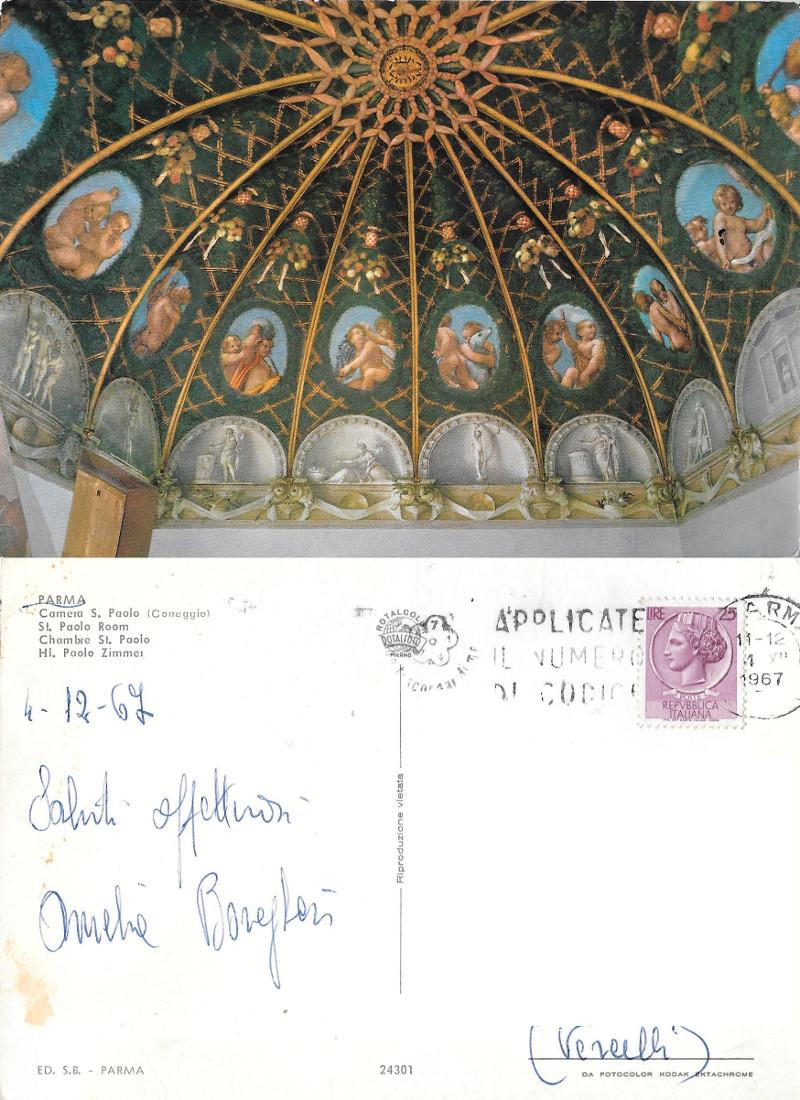 PARMA
Camera S. Paolo (Correggio)
St. Paolo Room
Chambre St. Paolo
Hl. Paolo Zimmer
4-12-67
Saluti affettuosi
Amelia
ROTALCOLOR
ROTALFOTO
MILANO
APPLICATE
IL NUMERO
DI CODICE
LIRE 25
POSTE
REPVBBLICA
ITALIANA
PARM
11-12
1967
Riproduzione vietata
(Vercelli)
ED. S.B. - PARMA
24301
DA FOTOCOLOR KODAK EKTACHROME